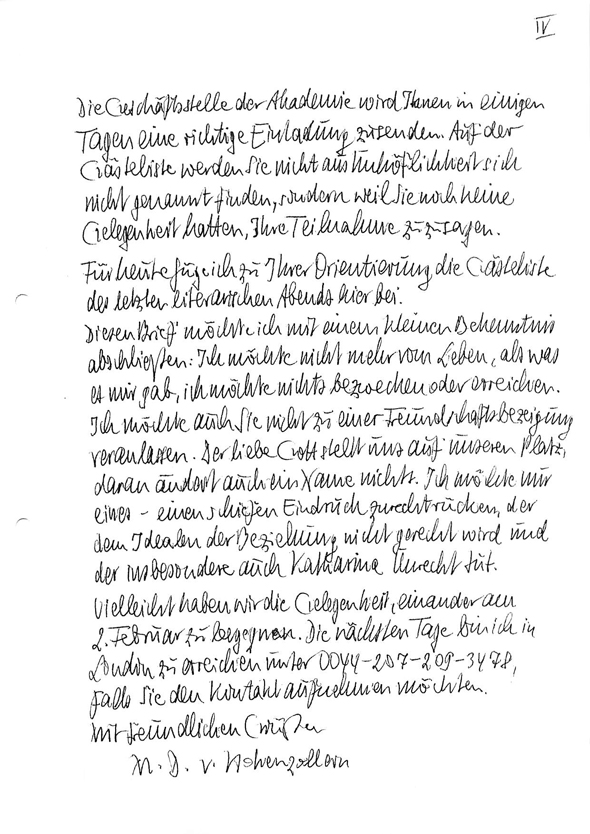 IV
Die Geschäftsstelle der Akademie wird Ihnen in einigen
Tagen eine richtige Einladung zusenden. Auf der
Gästeliste werden Sie nicht aus Unhöflichkeit sich
nicht genannt finden, sondern weil Sie noch keine
Gelegenheit hatten, Ihre Teilnahme zuzusagen.
Für heute füge ich zu Ihrer Orientierung die Gästeliste
des letzten literarischen Abends hier bei.
Diesen Brief möchte ich mit einem kleinen Bekenntnis
abschließen: Ich möchte nicht mehr vom Leben, als was
es mir gab, ich möchte nichts bezwecken oder erreichen.
Ich möchte auch Sie nicht zu einer Freundschaftsbezeigung
veranlassen. Der liebe Gott stellt uns auf unseren Platz,
daran ändert auch ein Name nichts. Ich möchte nur
eines - einen schiefen Eindruck zurechtrücken, der
dem Idealen der Beziehung nicht gerecht wird und
der insbesondere auch Katharina Unrecht tut.
Vielleicht haben wir die Gelegenheit, einander am
2. Februar zu begegnen. Die nächsten Tage bin ich in
London zu erreichen unter 0044-207-209-3478,
falls Sie den Kontakt aufnehmen möchten.
Mit freundlichen Grüßen
v. Hohenzollern